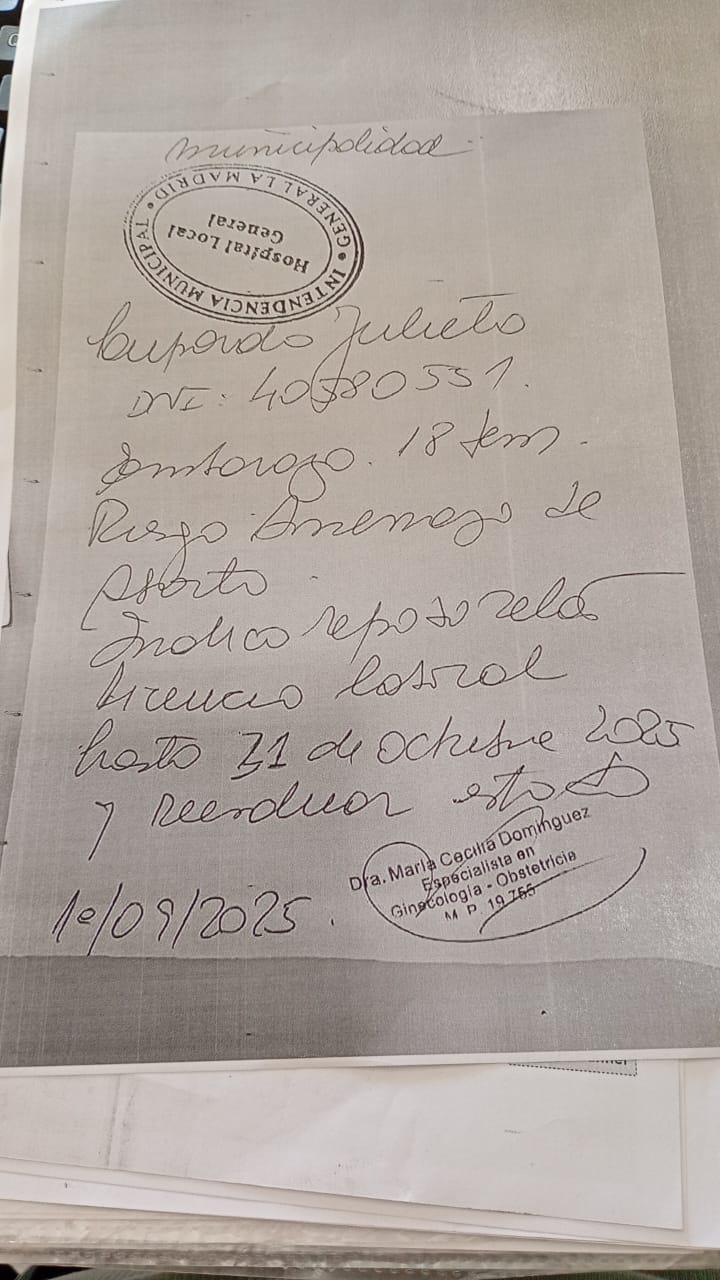 Municipalidad
• INTENDENCIA MUNICIPAL • GENERAL LA MADRID
Hospital Local
General
Julieta
DNI: 40380551.
Embarazo. 18 sem.
Riesgo Amenaza de
Aborto.
Indico reposo relat
Licencia laboral
hasta 31 de octubre 2025
y reevaluar estado
Dra. María Cecilia Dominguez
Especialista en
Ginecología - Obstetricia
M P 19.755
1º/09/2025.